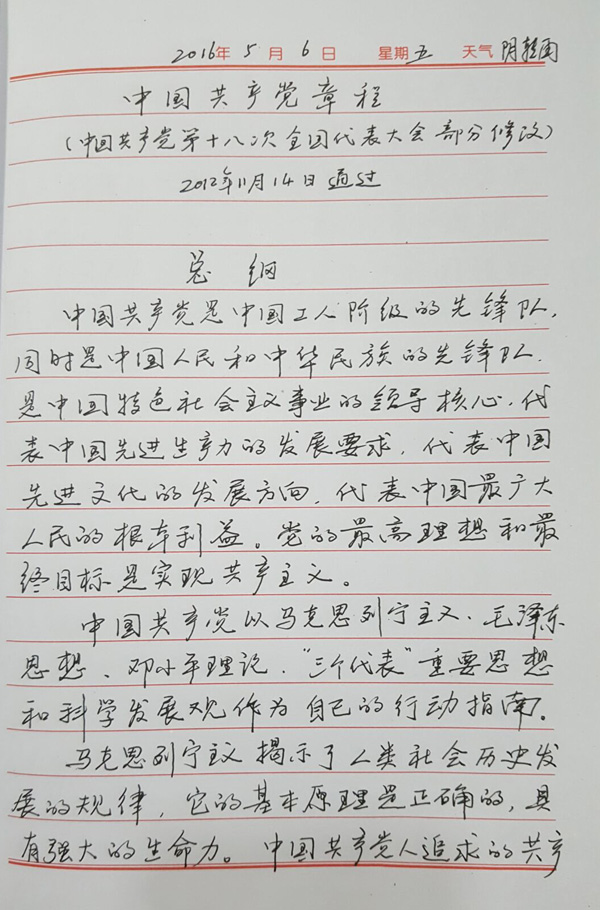 2016年 5 月 6 日 星期五 天气 阴转雨
中国共产党章程
(中国共产党第十八次全国代表大会部分修改)
2012年11月14日通过
总 纲
中国共产党是中国工人阶级的先锋队,
同时是中国人民和中华民族的先锋队.
是中国特色社会主义事业的领导核心,代
表中国先进生产力的发展要求,代表中国
先进文化的发展方向,代表中国最广大
人民的根本利益。党的最高理想和最
终目标是实现共产主义。
中国共产党以马克思列宁主义、毛泽东
思想、邓小平理论、“三个代表”重要思想
和科学发展观作为自己的行动指南。
马克思列宁主义揭示了人类社会历史发
展的规律,它的基本原理是正确的,具
有强大的生命力。中国共产党人追求的共产